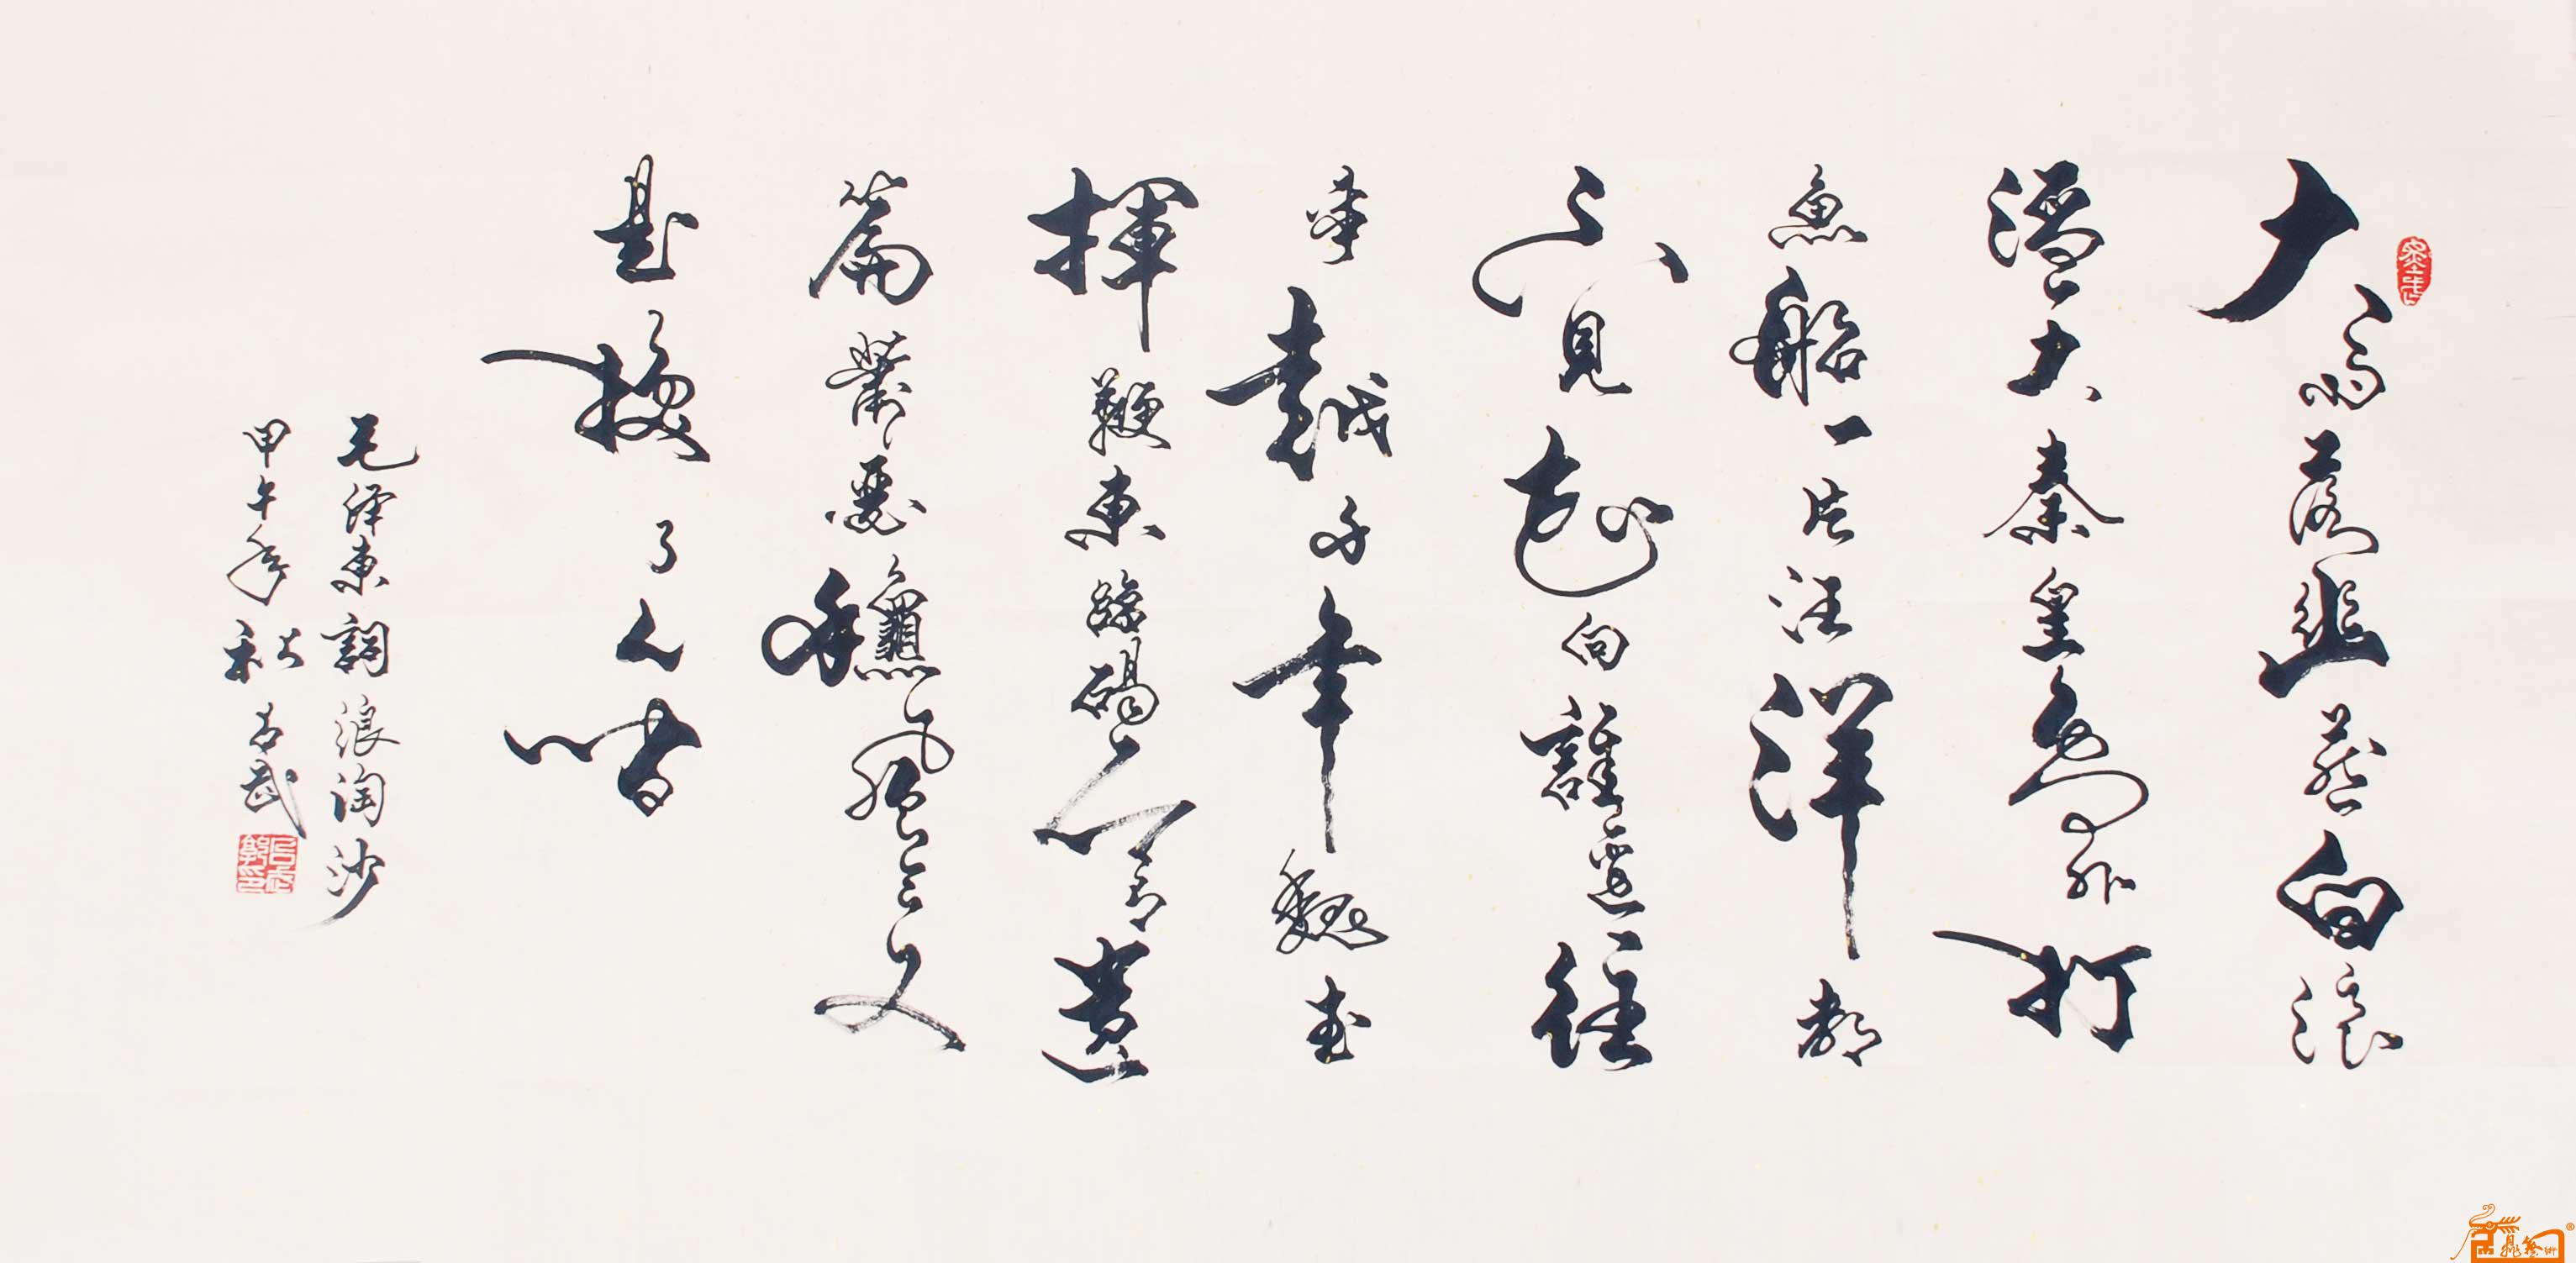 大雨落幽燕白浪
滔天秦皇島外打
魚船一片汪洋都
不見知向誰邊往
事越千年魏武
揮鞭東臨碣石有遺
篇蕭瑟龝風今又
是換了人間
毛泽東詞浪淘沙
甲午年秋武